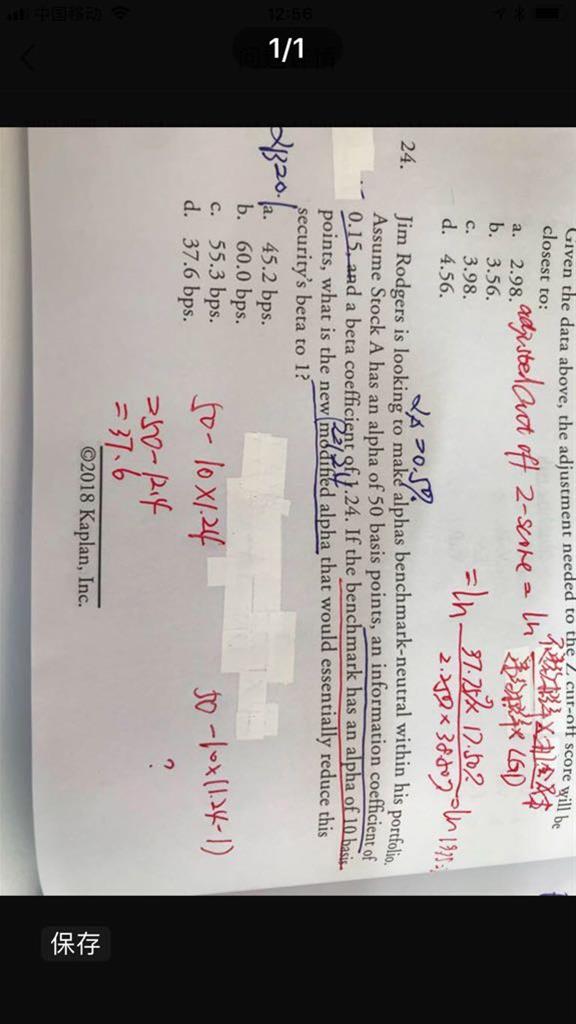 中国移动
12:56
1/1
Given the data above, the adjustment needed to the Z cut-off score will be
closest to:
a. 2.98.
b. 3.56.
c. 3.98.
d. 4.56.
adjusted cut off Z-score = ln
= ln
37.75% × 17.50%
αA = 0.5%
24. Jim Rodgers is looking to make alphas benchmark-neutral within his portfolio.
Assume Stock A has an alpha of 50 basis points, an information coefficient of
0.15, and a beta coefficient of 1.24. If the benchmark has an alpha of 10 basis
points, what is the new modified alpha that would essentially reduce this
security's beta to 1?
a. 45.2 bps.
b. 60.0 bps.
c. 55.3 bps.
d. 37.6 bps.
50 - 10 × 1.24
= 50 - 12.4
= 37.6
50 - 10 × (1.24 - 1)
?
©2018 Kaplan, Inc.
保存